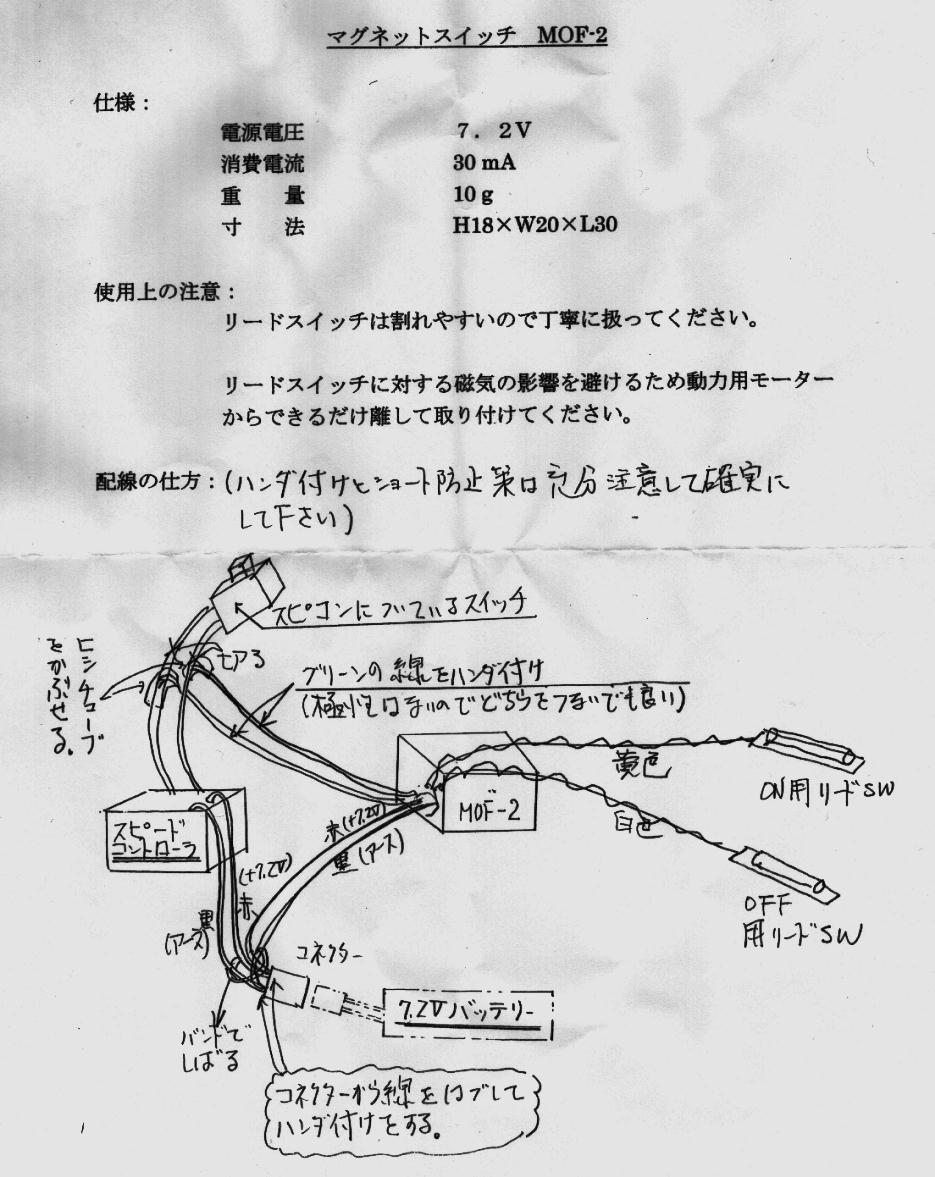 マグネットスイッチ　MOF-2
仕様：
電源電圧　7．2V
消費電流　30 mA
重　量　10 g
寸　法　H18×W20×L30
使用上の注意：
リードスイッチは割れやすいので丁寧に扱ってください。
リードスイッチに対する磁気の影響を避けるため動力用モーター
からできるだけ離して取り付けてください。
配線の仕方：(ハンダ付けとショート防止策は充分注意して確実に
して下さい)
スピコンについているスイッチ
ヒシチューブ
をかぶせる。
グリーンの線をハンダ付け
(極性はないのでどちらをつないでも良い)
黄色
ON用リードSW
MOF-2
白色
OFF
用リードSW
スピード
コントローラ
赤(+7.2V)
黒(アース)
(+7.2V)
赤
黒
(アース)
コネクター
7.2Vバッテリー
バンドで
しばる
コネクターから線をハズして
ハンダ付けをする。